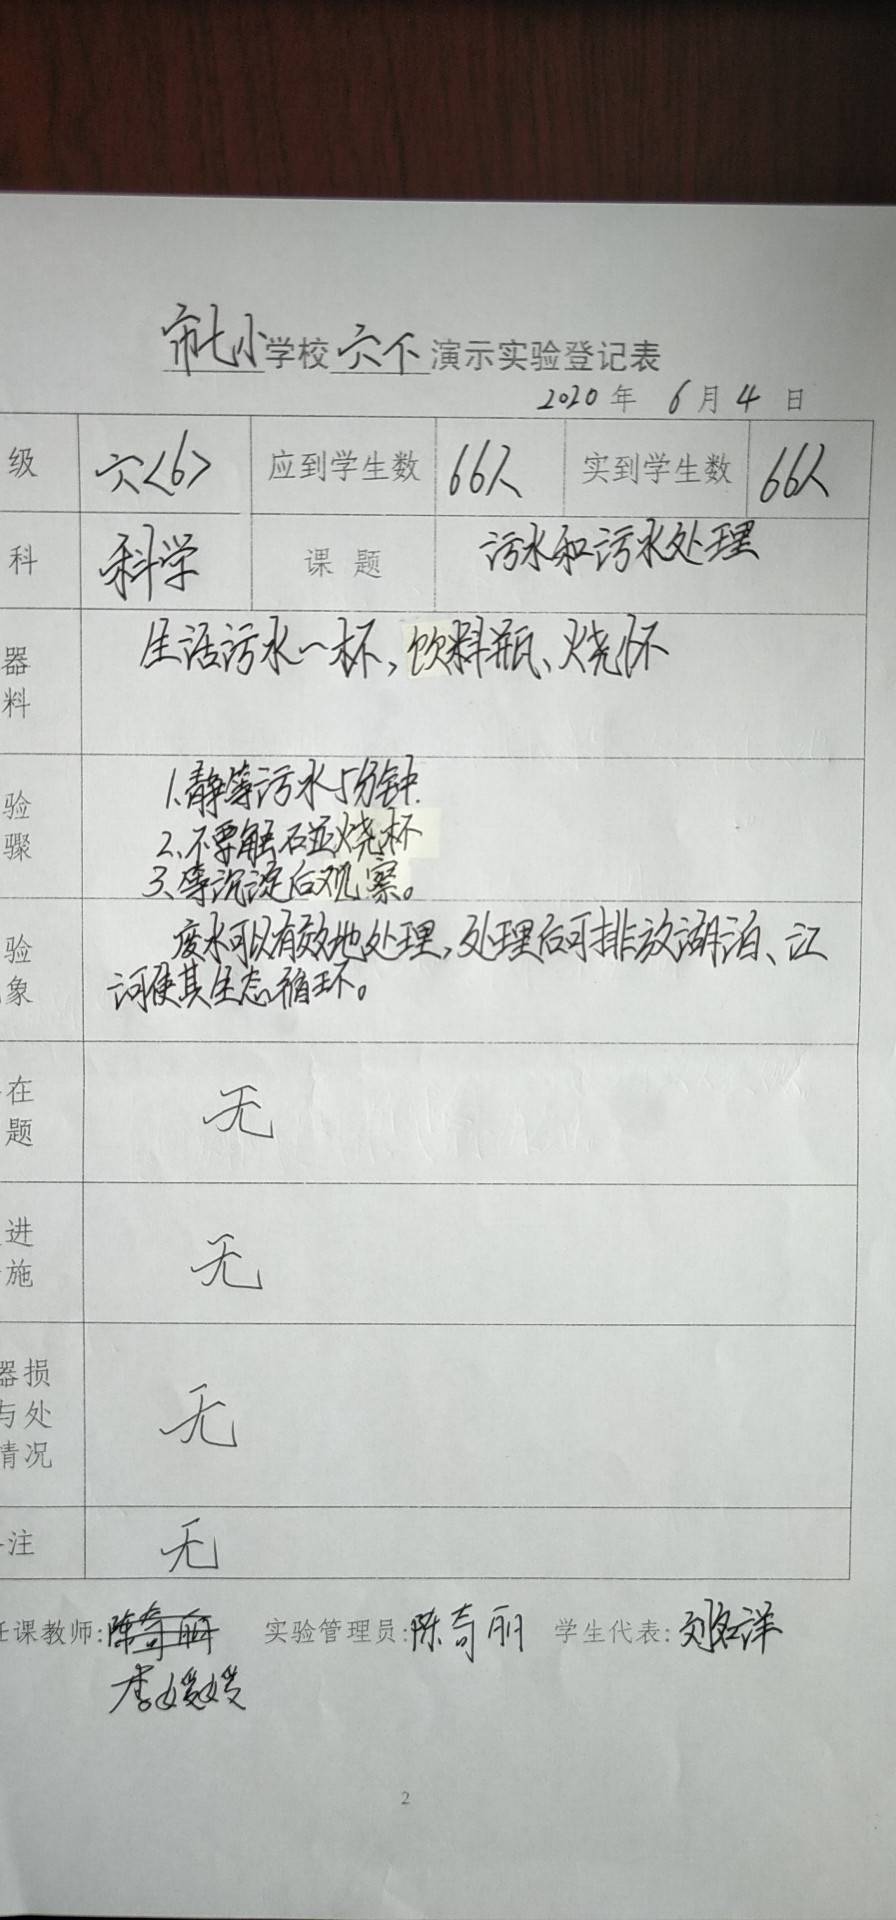 市七小学校六下演示实验登记表
2020年 6月4日
级 六<6> 应到学生数 66人 实到学生数 66人
科 科学 课题 污水和污水处理
器 生活污水一杯,饮料瓶、烧杯
料
1、静等污水5分钟.
验
2、不要触碰烧杯
骤
3、等沉淀后观察。
废水可以有效地处理,处理后可排放湖泊、江
验
河使其生态循环。
象
在
无
题
进
无
施
器损
与处 无
情况
注 无
任课教师: 实验管理员:陈奇丽 学生代表:刘洺洋
李媛媛
2